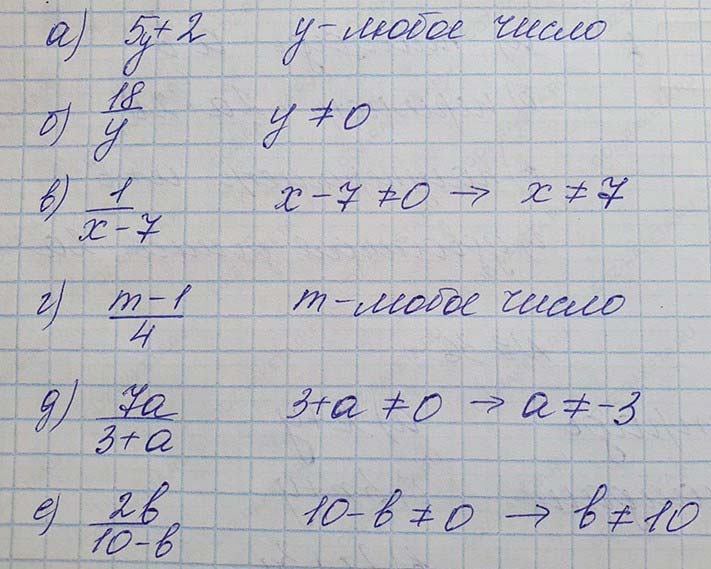 а) 5y+2 y – любое число
б) 18/y y ≠ 0
в) 1/(x-7) x-7 ≠ 0 → x ≠ 7
г) (m-1)/4 m – любое число
д) 7a/(3+a) 3+a ≠ 0 → a ≠ -3
е) 2b/(10-b) 10-b ≠ 0 → b ≠ 10